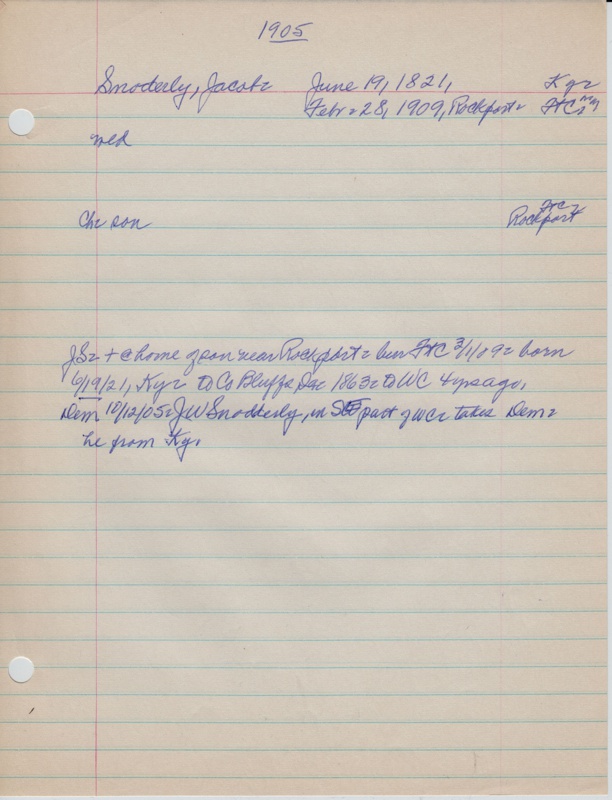 1905
Snoderly, Jacob= June 19, 1821, Ky=
Febr=28, 1909, Rockport= HC=
med
Ch= son HC=
Rockport
JS= + @ home of son near Rockport= bur HC 3/1/09= born
6/19/21, Ky= to Co Bluffs Dec 1863= to WC 4 yrs ago,
Dem 10/12/05= JW Snodderly, in SE part of WC= takes Dem=
he from Ky.